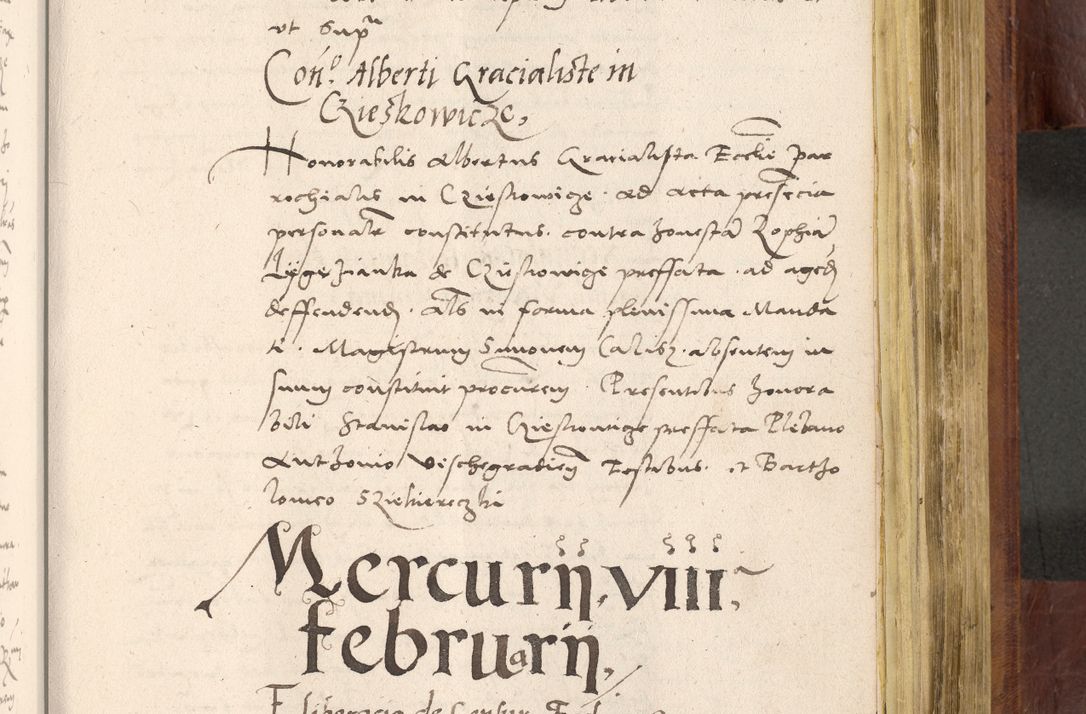 ut Supra
Con.o Alberti Gracialiste in
CZieskowicze,
Honorabilis Albertus Gracialista Ecclie par
rochialis in CZieskowicze . ad acta presencia
personalr constitutus . contra honestã Zophiã
de CZieskowicze preffata . ad agedz
deffendendz . Als in forma plenissima Manda
ti . Magistrum Simonem Calisz . absentem in
suum constituit procurem . Presentibus honora
bili Stanislao in Czieskowicze preffata Plebano
Anthonio Vischegradien Testibus . et Bartho
lomeo SZiekierczki
Mercurij, VIII a,
februarij,